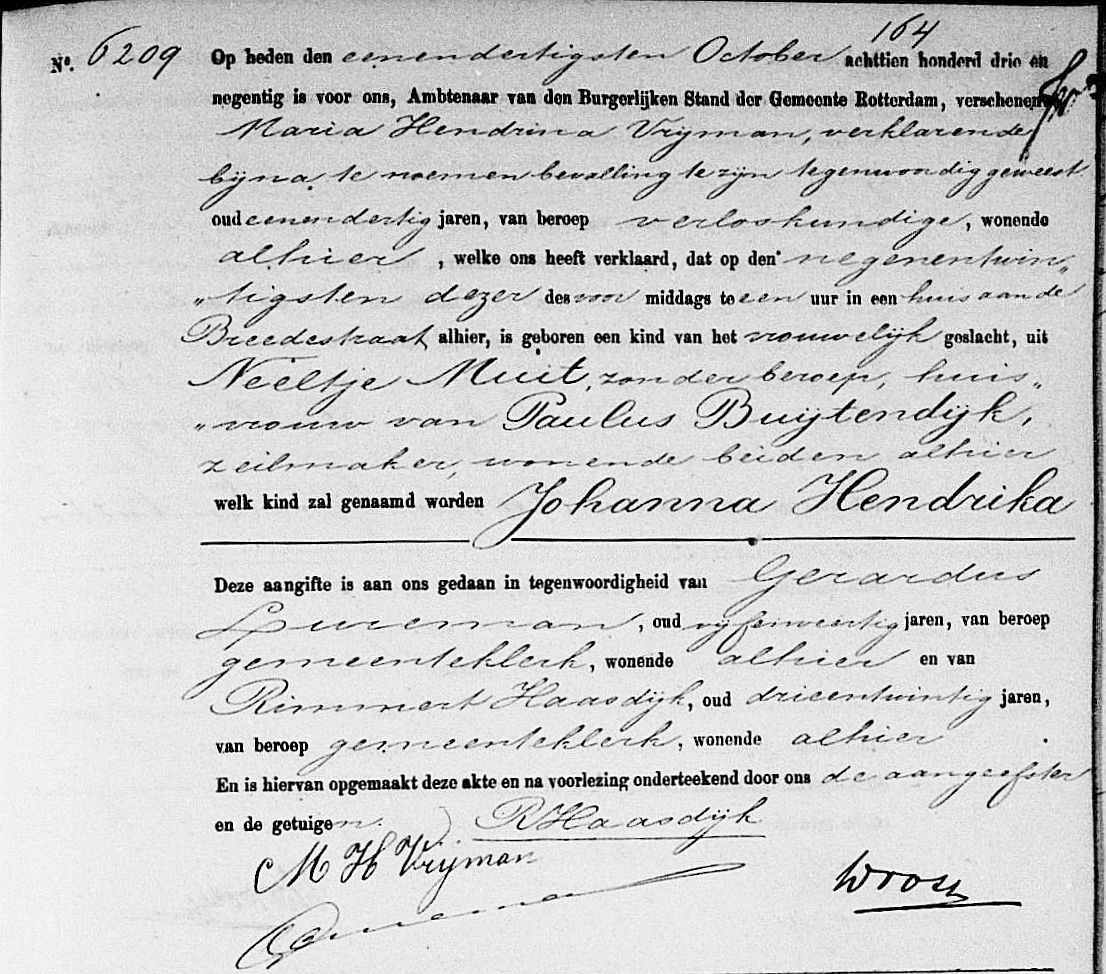 164
No. 6209 Op heden den eenendertigsten October achttien honderd drie en
negentig is voor ons, Ambtenaar van den Burgerlijken Stand der Gemeente Rotterdam, verschenen
Maria Hendrina Vrijman, verklarende
bij na te noemen bevalling te zijn tegenwoordig geweest
oud eenendertig jaren, van beroep verloskundige, wonende
alhier, welke ons heeft verklaard, dat op den negenentwin„
„tigsten dezer des voor middags te een uur in een huis aan de
Breedestraat alhier, is geboren een kind van het vrouwelijk geslacht, uit
Neeltje Muit, zonder beroep, huis„
„vrouw van Paulus Buijtendijk,
zeilmaker, wonende beiden alhier
welk kind zal genaamd worden Johanna Hendrika
Deze aangifte is aan ons gedaan in tegenwoordigheid van Gerardus
oud vijfenveertig jaren, van beroep
gemeenteklerk, wonende alhier en van
Rimmert Haasdijk, oud drieentwintig jaren,
van beroep gemeenteklerk, wonende alhier
En is hiervan opgemaakt deze akte en na voorlezing onderteekend door ons de aangeefster
en de getuigen. RHaasdijk
M H Vrijman